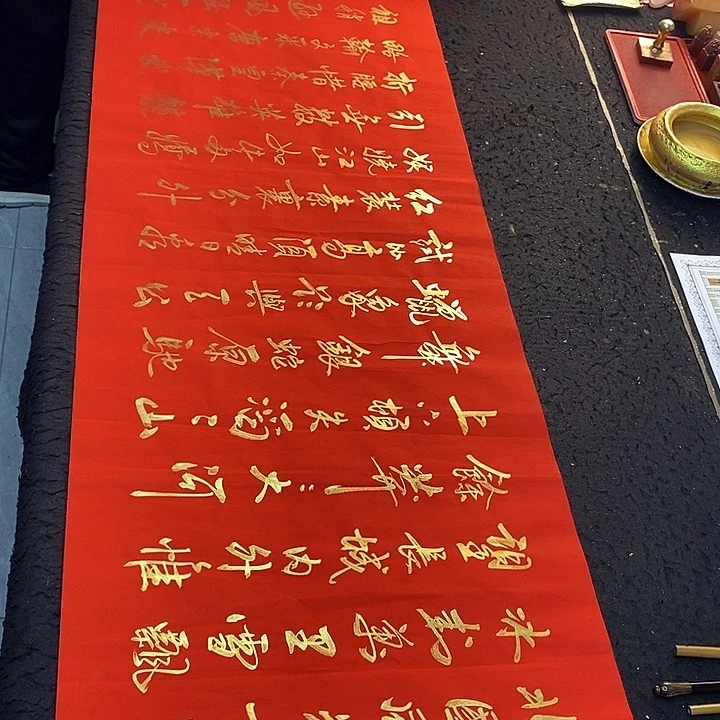 北國風光
冰封萬里雪飄
望長城内外惟
餘莽〻大河
上下頓失滔〻山
舞銀蛇原馳
蠟象欲與天公
試比高須晴日看
紅裝素裹分外
妖嬈江山如此多嬌
引無數英雄競
折腰惜秦皇漢武
略輸文采唐宗宋
祖稍遜風騷一